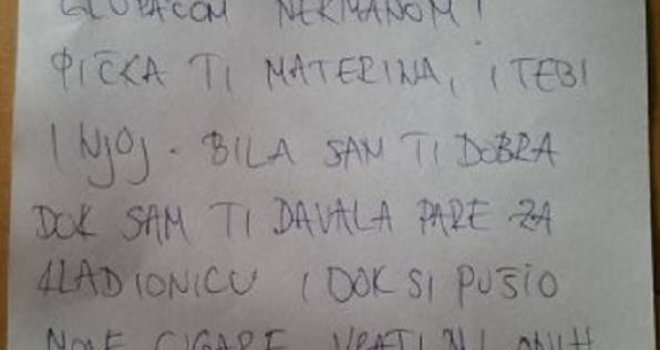 GLUPAČOM NERMANOM!
PIČKA TI MATERINA, I TEBI
I NJOJ. BILA SAM TI DOBRA
DOK SAM TI DAVALA PARE ZA
KLADIONICU I DOK SI PUŠIO
MOJE CIGARE. VRATI MI ONIH